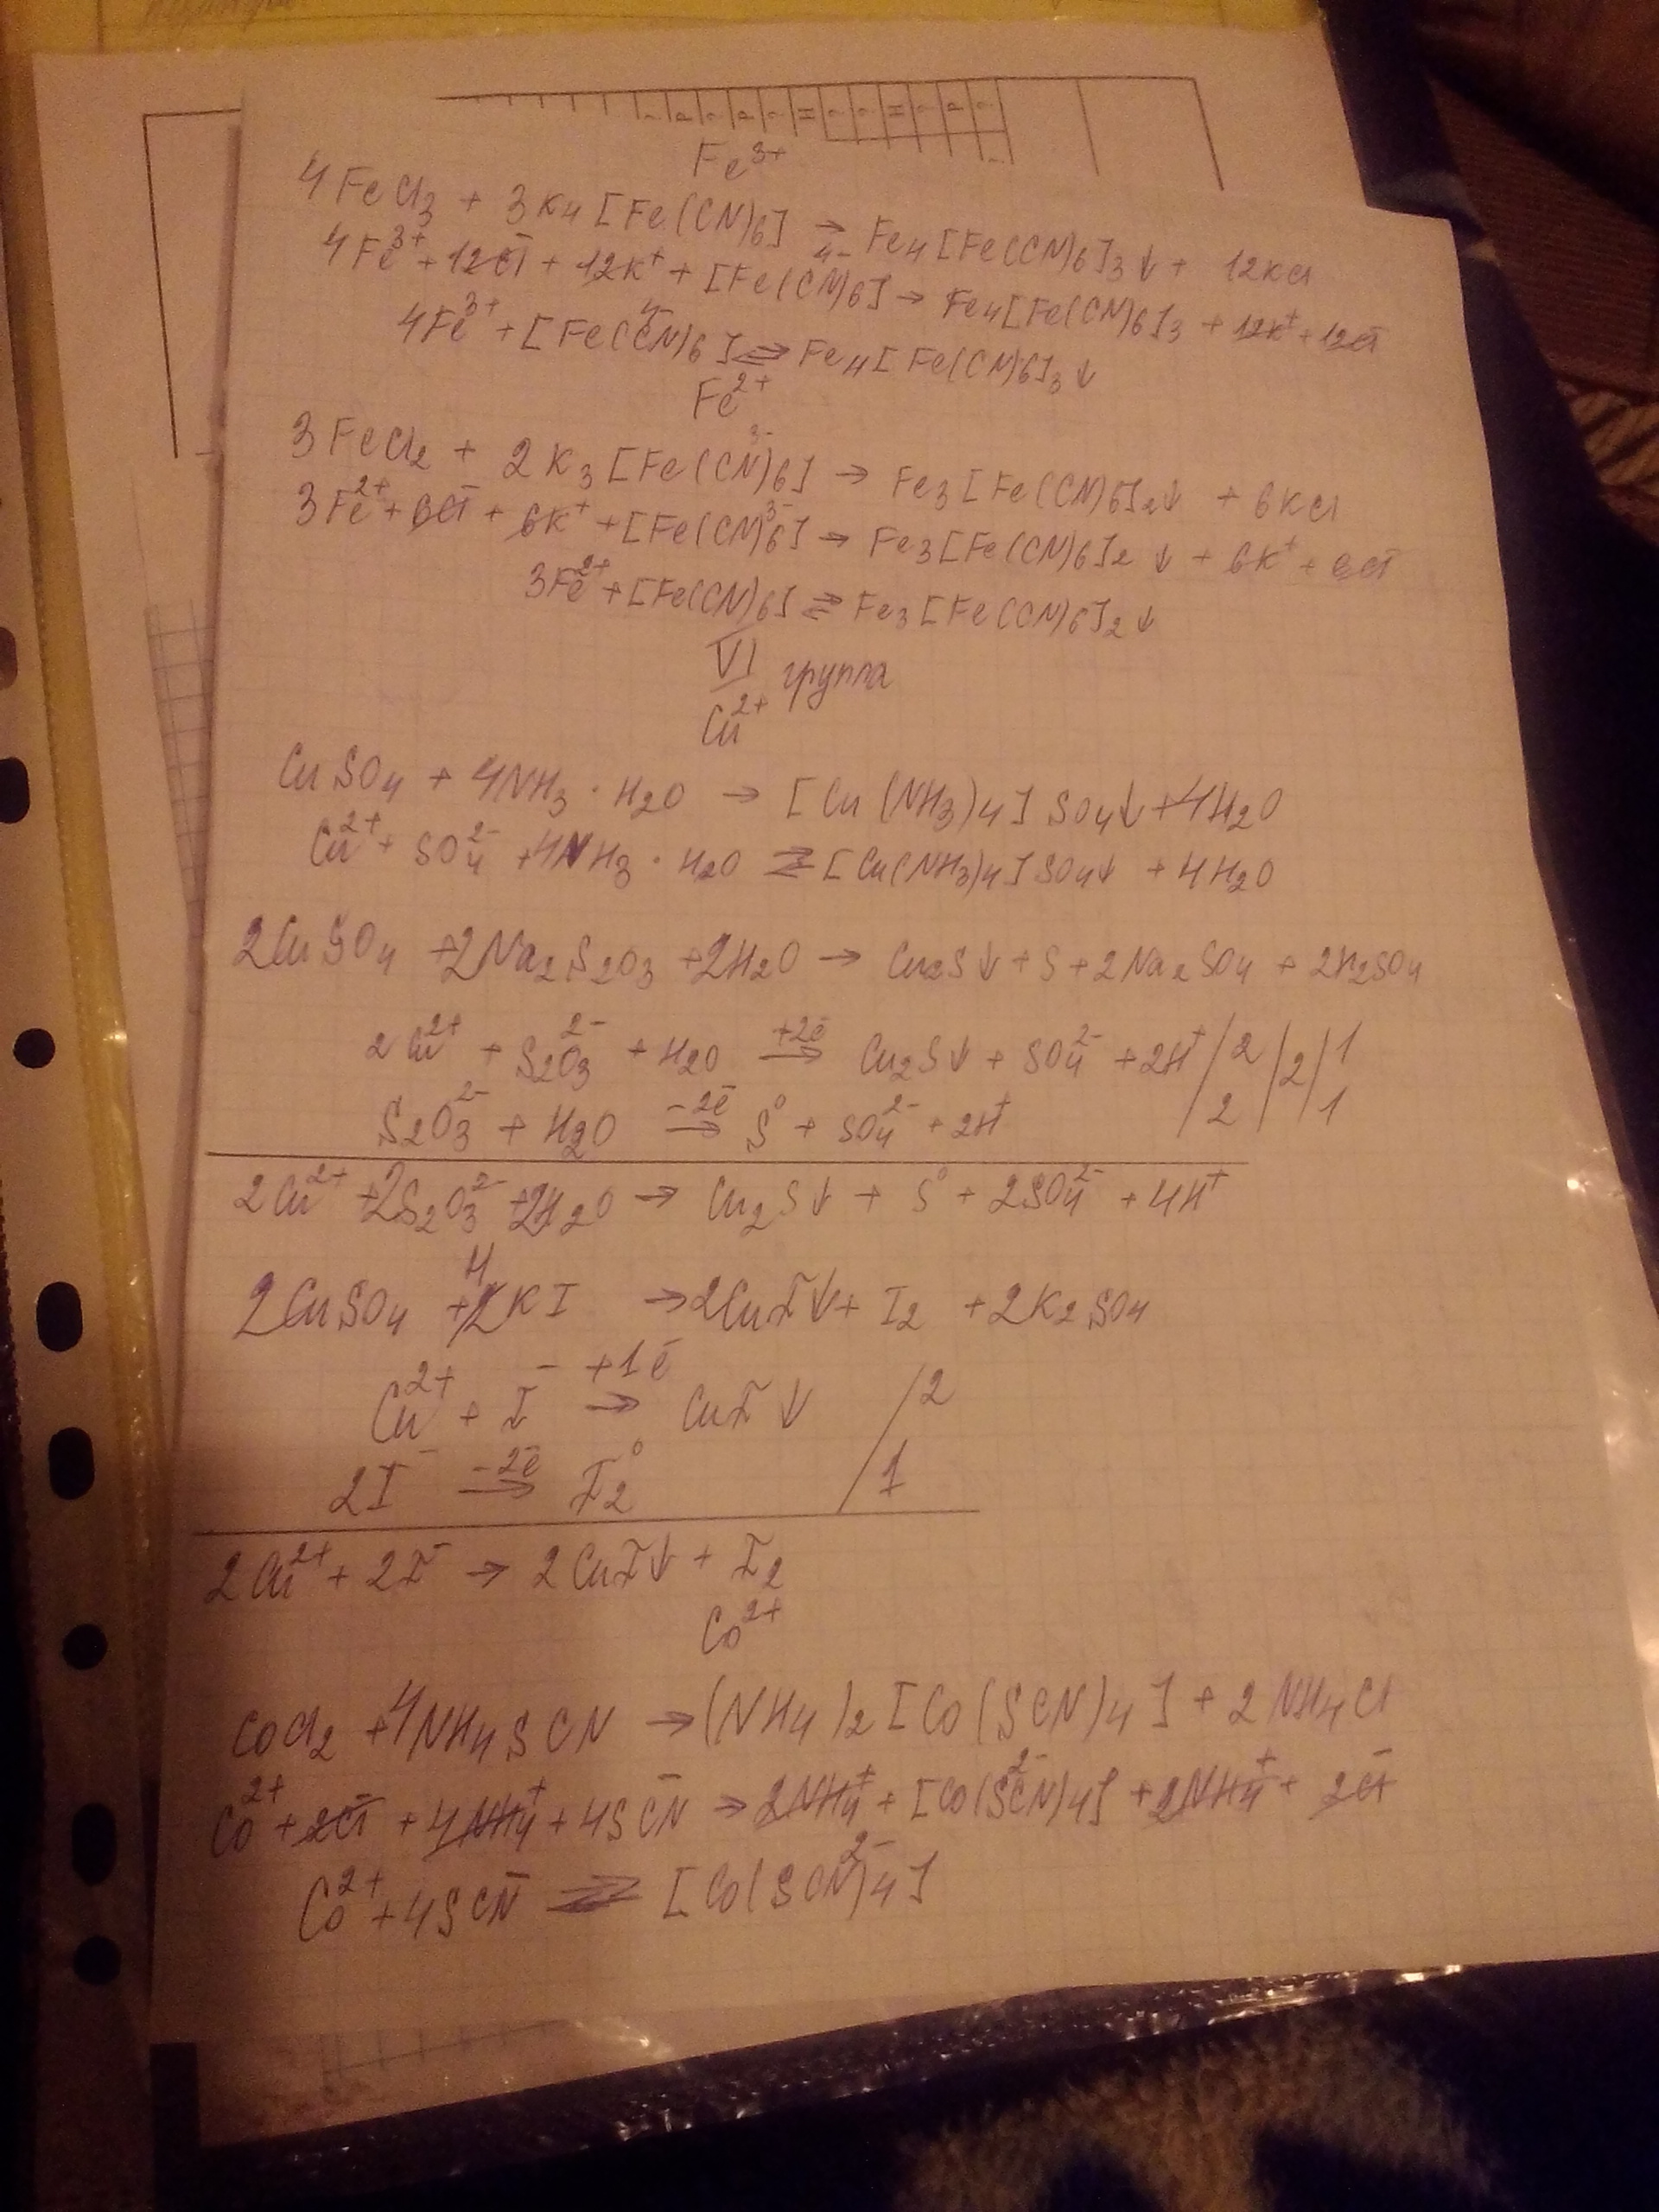 Fe³⁺
4FeCl₃ + 3K₄[Fe(CN)₆] → Fe₄[Fe(CN)₆]₃↓ + 12KCl
4Fe³⁺ + 12Cl⁻ + 12K⁺ + [Fe(CN)₆]⁴⁻ → Fe₄[Fe(CN)₆]₃ + 12K⁺ + 12Cl⁻
4Fe³⁺ + [Fe(CN)₆]⁴⁻ ⇄ Fe₄[Fe(CN)₆]₃↓
Fe²⁺
3FeCl₂ + 2K₃[Fe(CN)₆]³⁻ → Fe₃[Fe(CN)₆]₂↓ + 6KCl
3Fe²⁺ + 6Cl⁻ + 6K⁺ + [Fe(CN)₆]³⁻ → Fe₃[Fe(CN)₆]₂↓ + 6K⁺ + 6Cl⁻
3Fe²⁺ + [Fe(CN)₆] ⇄ Fe₃[Fe(CN)₆]₂↓
VI группа
Cu²⁺
CuSO₄ + 4NH₃ · H₂O → [Cu(NH₃)₄]SO₄↓ + 4H₂O
Cu²⁺ + SO₄²⁻ + 4NH₃ · H₂O ⇄ [Cu(NH₃)₄]SO₄↓ + 4H₂O
2CuSO₄ + 2Na₂S₂O₃ + 2H₂O → Cu₂S↓ + S + 2Na₂SO₄ + 2H₂SO₄
2Cu²⁺ + S₂O₃²⁻ + H₂O +2ē → Cu₂S↓ + SO₄²⁻ + 2H⁺ / 2 / 2 / 1
S₂O₃²⁻ + H₂O −2ē → S⁰ + SO₄²⁻ + 2H⁺ / 2 / 1
2Cu²⁺ + 2S₂O₃²⁻ + 2H₂O → Cu₂S↓ + S⁰ + 2SO₄²⁻ + 4H⁺
2CuSO₄ + 4KI → 2CuI↓ + I₂ + 2K₂SO₄
Cu²⁺ + I⁻ +1ē → CuI↓ / 2
2I⁻ −2ē → I₂⁰ / 1
2Cu²⁺ + 2I⁻ → 2CuI↓ + I₂
Co²⁺
CoCl₂ + 4NH₄SCN → (NH₄)₂[Co(SCN)₄] + 2NH₄Cl
Co²⁺ + 2Cl⁻ + 4NH₄⁺ + 4SCN⁻ → 2NH₄⁺ + [Co(SCN)₄]²⁻ + 2NH₄⁺ + 2Cl⁻
Co²⁺ + 4SCN⁻ ⇄ [Co(SCN)₄]²⁻